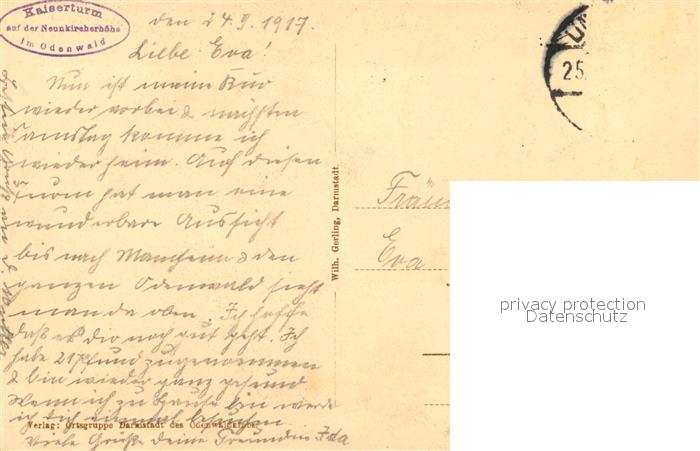 Kaiserturm
auf der Neunkircherhöhe
im Odenwald
den 24.9.1917.
Liebe Eva!
Nun ist meine Kur
wieder vorbei & nächsten
Samstag komme ich
wieder heim. Auf diesen
Turm hat man eine
wunderbare Aussicht
bis nach Mannheim & den
ganzen Odenwald sieht
man da oben. Ich hoffe
daß es dir noch gut geht. Ich
habe 21 Pfund zugenommen
& bin wieder ganz gesund.
Wenn ich zu Hause bin werde
ich dich einmal besuchen.
Viele Grüße deine Freundin Ida
Verlag: Ortsgruppe Darmstadt des Odenwaldklubs.
Wilh. Gerling, Darmstadt.
25.
Fräu
Eva
privacy protection
Datenschutz